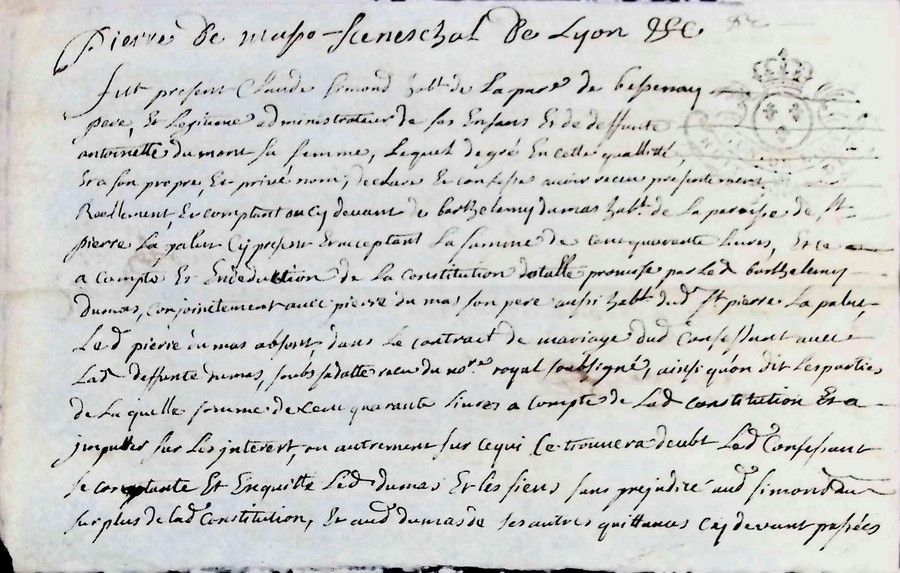 Pierre de maso-seneschal de Lyon &c
fut present Claude simond habt. de La parse. de bessenay
pere, et Legitime administrateur de ses Enfans et de deffunte
antoinette dumont sa femme, Lequel de gré En cette quallité,
Et a son propre, Et privé nom, declare Et confesse avoir receu presentement
Reellement, Et comptant au Cy devant de barthelemy dumas habt. de La paroisse de st
pierre La palut Cy present Et acceptant La somme de cent quarente Livres, Et ce
a compte Et En deduction de La Constitution dotalle promise par Led. barthelemy
dumas, conjoinctement avec pierre du mas son pere aussi habt. dud. st pierre La palue,
Led. pierre du mas absent, dans Le contrat de mariage dud. Confessant avec
Lad. deffunte dumas, soubs sa datte receu du nore. royal soubsigné, ainsi qu'on dit Les parties
de La quelle somme de Cent quarante Livres a compte de Lad. constitution Et a
jmputter sur Les interest, ou autrement sur ce qui se trouvera deubt Led. Confessant
se contante Et En quitte Led. dumas Et les siens sans prejudice aud. simond du
surplus de lad. Constitution, Et aud. dumas de ses autres quittances Cy devant passées